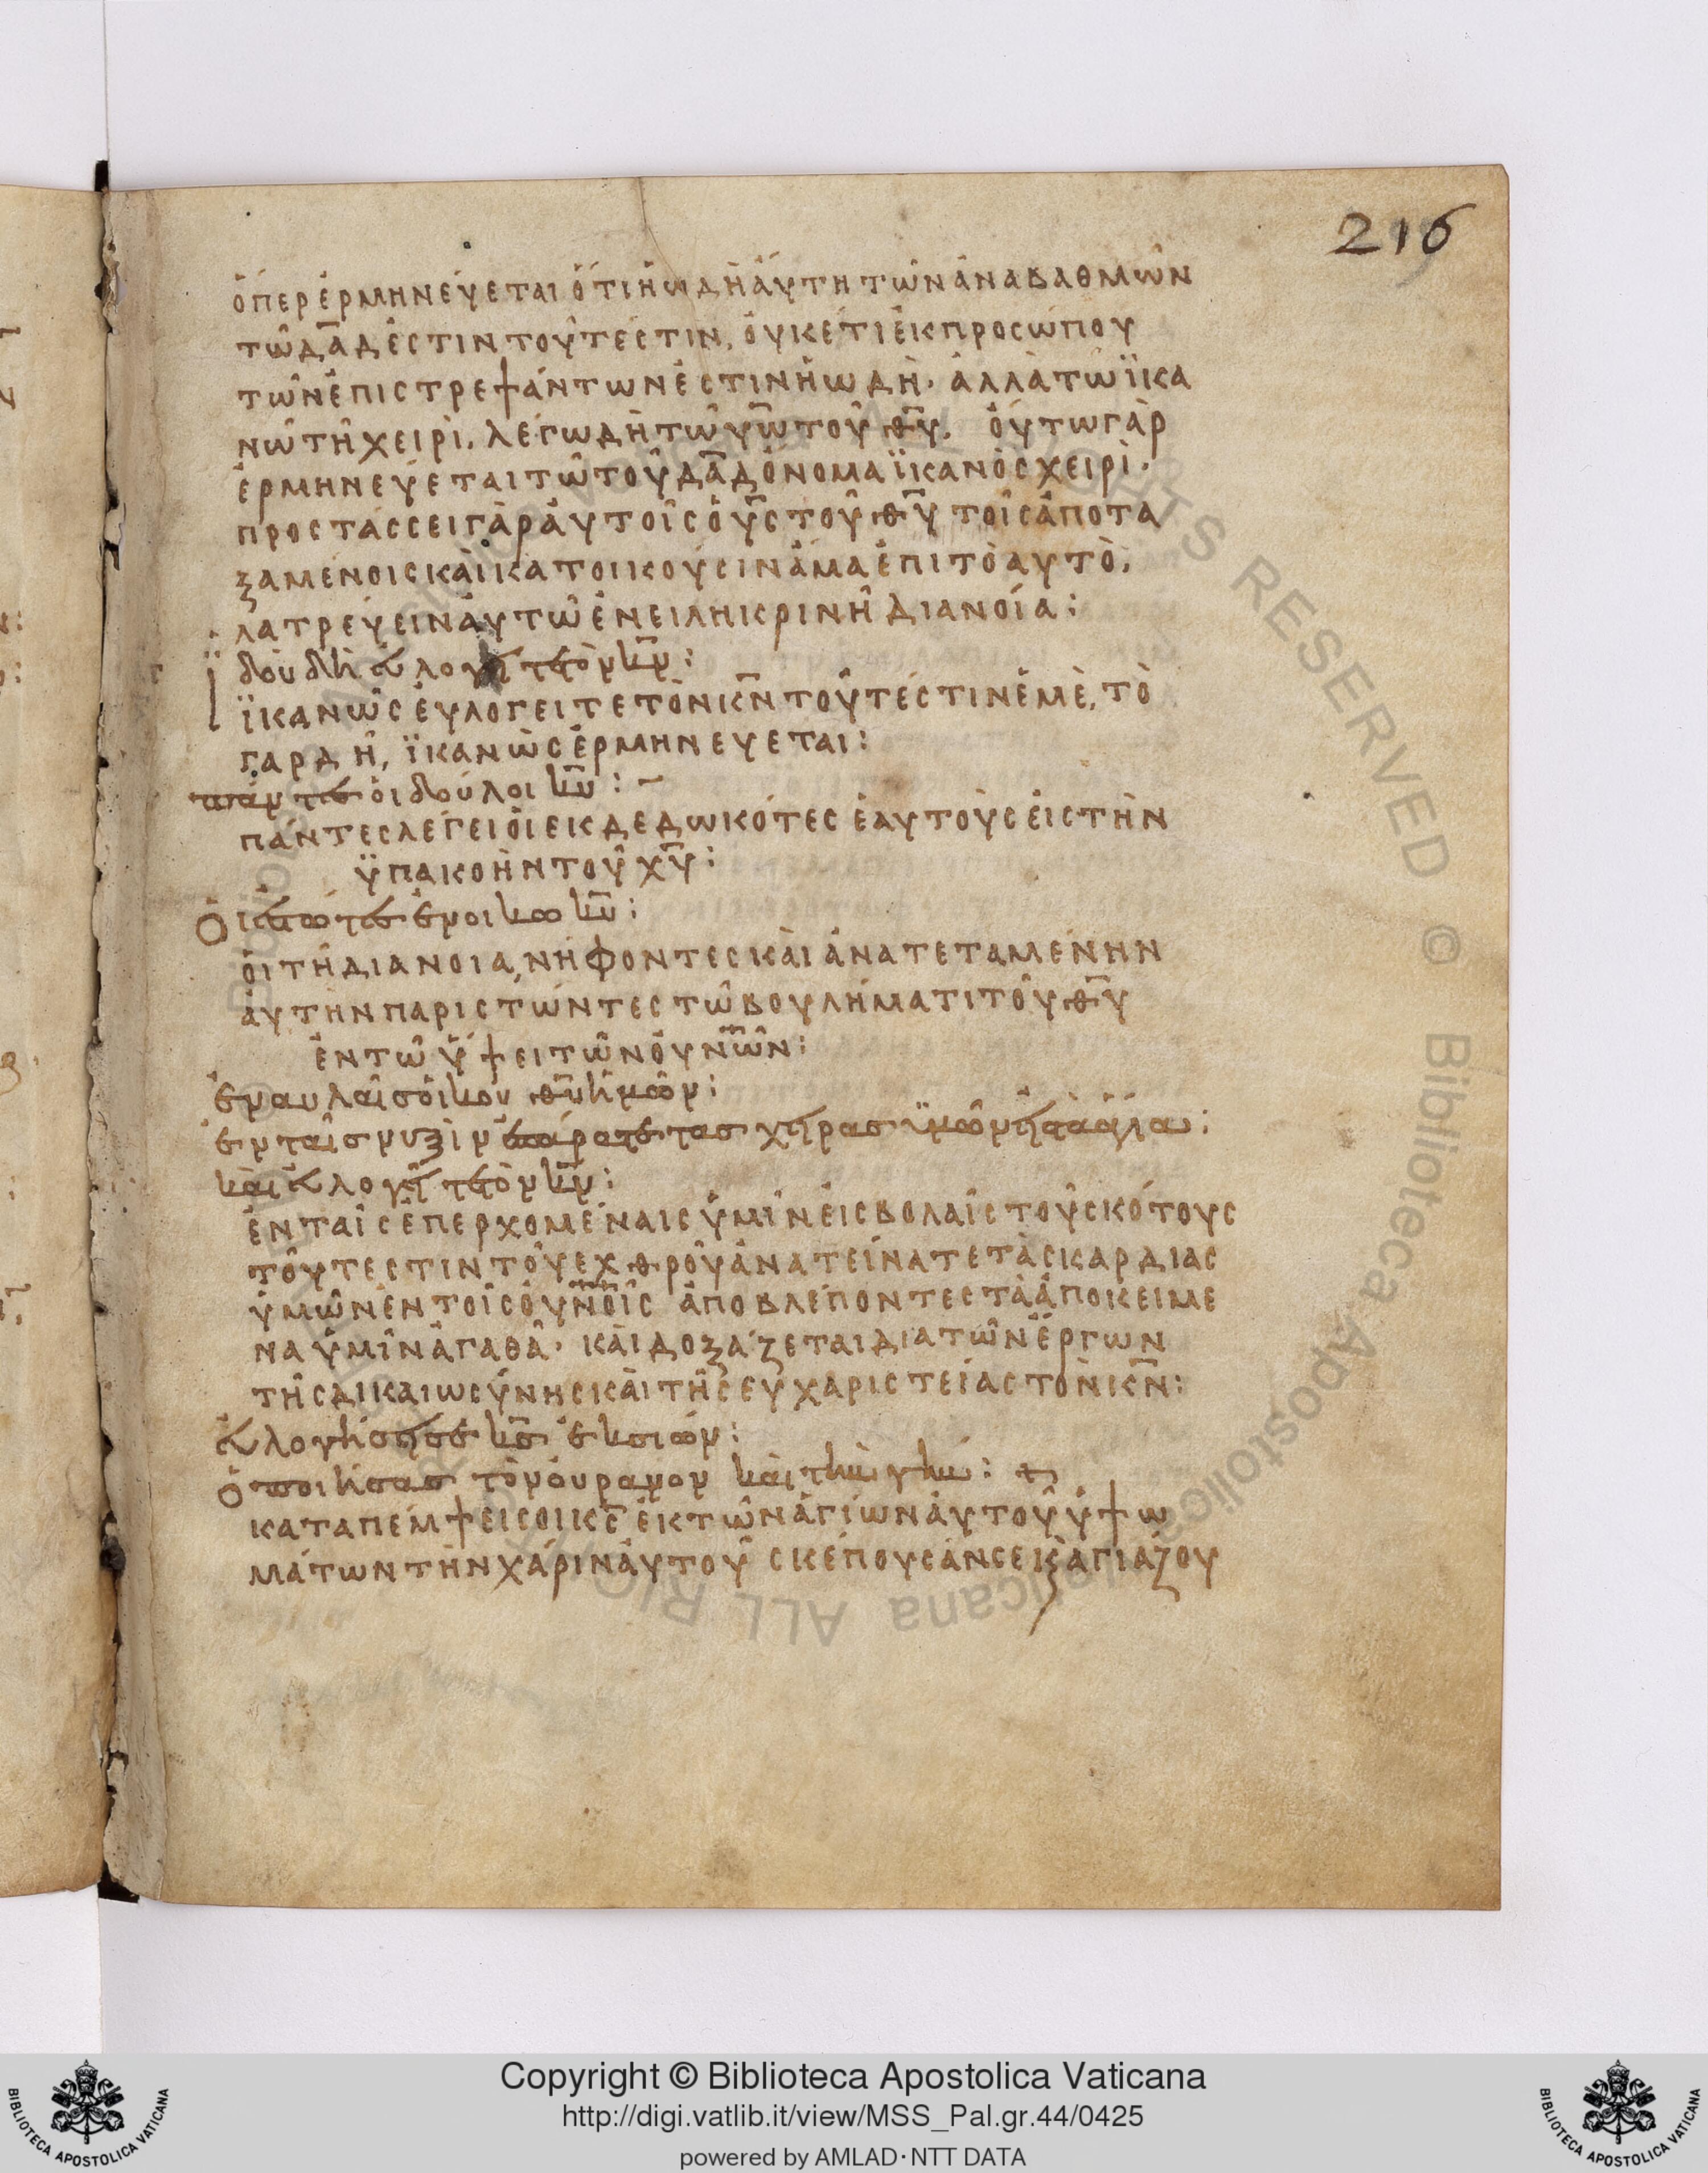 216
ὅπερ ἑρμηνεύεται ὅτι ἡ ὠδὴ ἅυτη τῶν ἀναβαθμῶν
τῶ δᾱδ ἐστιν τουτέστιν, ὀυκέτι ἐκ προσώπου
τῶν ἐπιστρεψάντων ἐστιν ἡ ὠδὴ· ἀλλὰ τῶ ϊκα
νῶ τῆ χειρὶ. λέγω δὴ τῶ υ̅ω̅ τοῦ θ̅υ̅. ὅυτω γὰρ
ἑρμηνεύεται τῶ τοῦ δᾱδ ὄνομα ϊκανὸς χειρὶ·
προστάσσει γὰρ ἀυτοῖς ὁ υ̅ς̅ τοῦ θ̅υ̅ τοῖς ἀποτα
ξαμένοις κὰι κατοικοῦσιν ἅμα ἐπιτὸαυτὸ,
λατρέυειν ἀυτῶ ἐν ειληκρινῆ διανοία:
ϊδοὺ δὴ ἐυλογεῖτε τὸν κ̅ν̅:
ϊκανῶς ἐυλογειτε τὸν κ̅ν̅ τουτέστιν ἐμὲ, τὸ
γαρ δὴ, ϊκανὼς ἑρμηνευεται:
πάντες ὁι δούλοι κ̅υ̅:
πάντες λέγει ὁι εκδεδωκότες ἑαυτοὺς ἐις τὴν
ϋπακοὴν τοῦ χ̅υ̅:
Ὁι ἑστῶτες ἐν οικω κ̅υ̅:
ὁι τῆ διανοια, νήφοντες κὰι ἀνατεταμένην
ἀυτὴν παριστώντες τῶ βουλήματι τοῦ θ̅υ̅
ἐν τῶ ὕψει τῶν ὀυν̅ω̅ν:
ἐν αυλαῖς ὀίκου θ̅υ̅ ἡμῶν:
ἐν ταῖς νυξὶν ἐπάρατε τας χεῖρας ϋμῶν εἰς τὰ ἅγια:
κὰι ἐυλογεῖτε τὸν κ̅ν̅:
ἐν ταῖς ἐπερχομέναις ὑμῖν ἐισβολαῖς τοῦ σκότους
τοῦτεστιν τοῦ εχθροῦ ἀνατείνατε τὰς καρδιας
ὑμῶν ἐν τοῖς ὀυν̅ο̅ῖς ἀποβλέποντες τὰ ἀποκειμε
να ὑμῖν ἀγαθᾶ· κὰι δοξάζεται διατῶν ἔργων
τῆς δικαιωσύνης κὰι τῆς ἐυχαριστείας τὸν κ̅ν̅:
ἐυλογήσει σε κ̅ς̅ ἐκ σιών:
ὁ ποιήσας τὸν ὀυρανον κὰι τὴν γὴν:
καταπέμψει σοι κ̅ς̅ ἐκ τῶν ἁγίων ἀυτοῦ ὑψω
μάτων τὴν χάριν ἀυτοῦ σκέπουσάν σε κ̀ ἁγιάζου
Copyright © Biblioteca Apostolica Vaticana
http://digi.vatlib.it/view/MSS_Pal.gr.44/0425
powered by AMLAD·NTT DATA
BIBLIOTECA APOSTOLICA VATICANA
BIBLIOTECA APOSTOLICA VATICANA